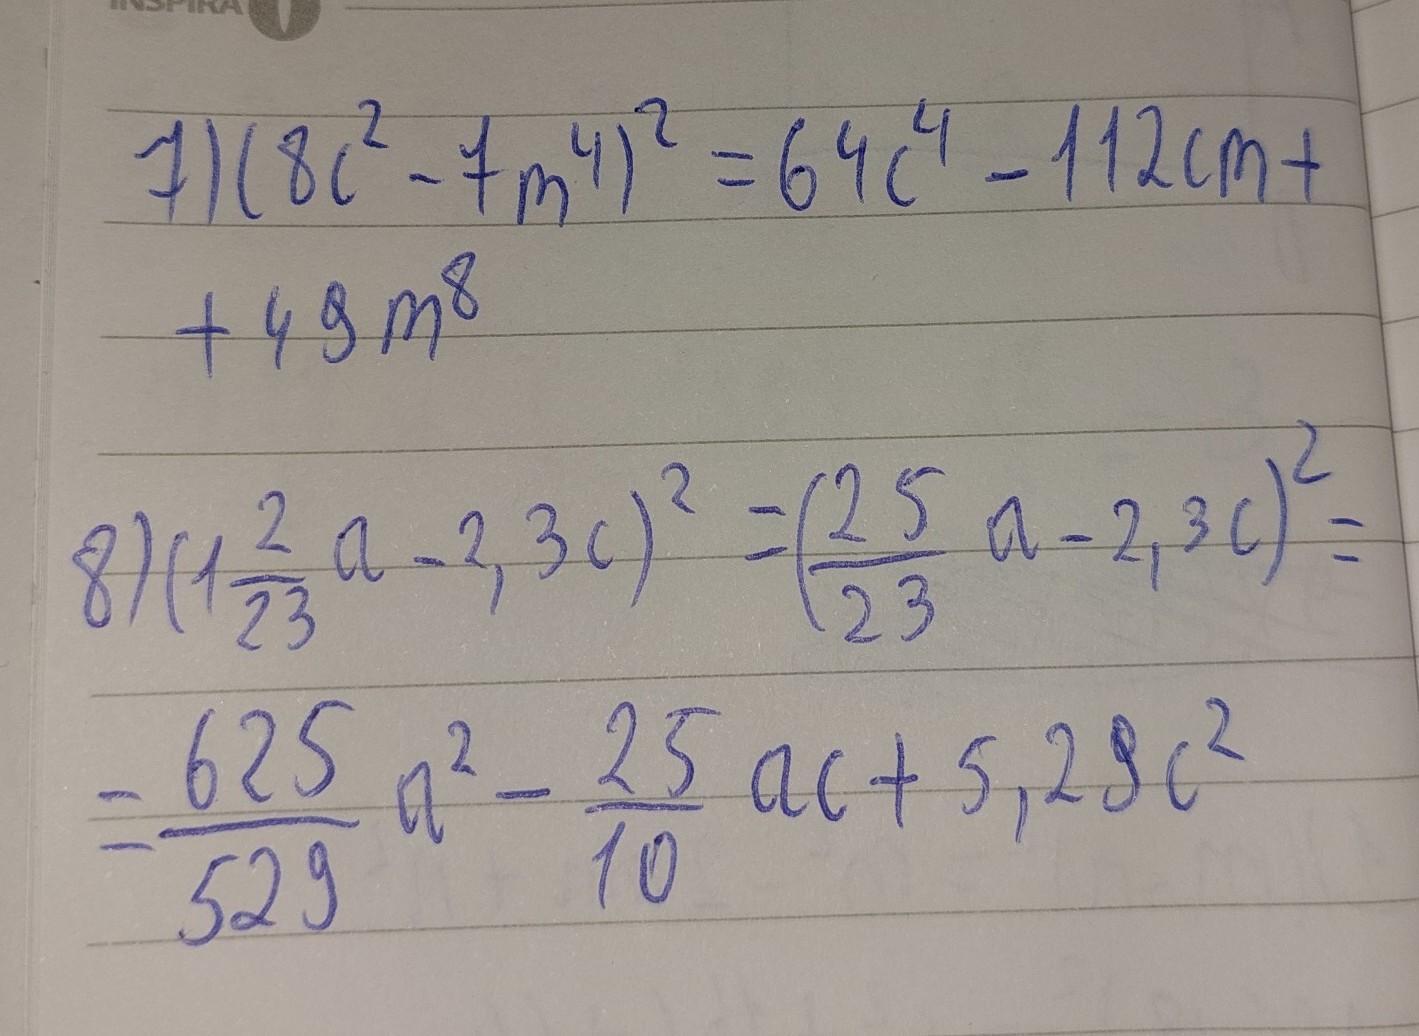 INSPIRA
7) (8c² - 7m⁴)² = 64c⁴ - 112cm +
+ 49m⁸
8) (1 2/23 a - 2,3c)² = (25/23 a - 2,3c)² =
= 625/529 a² - 25/10 ac + 5,29c²